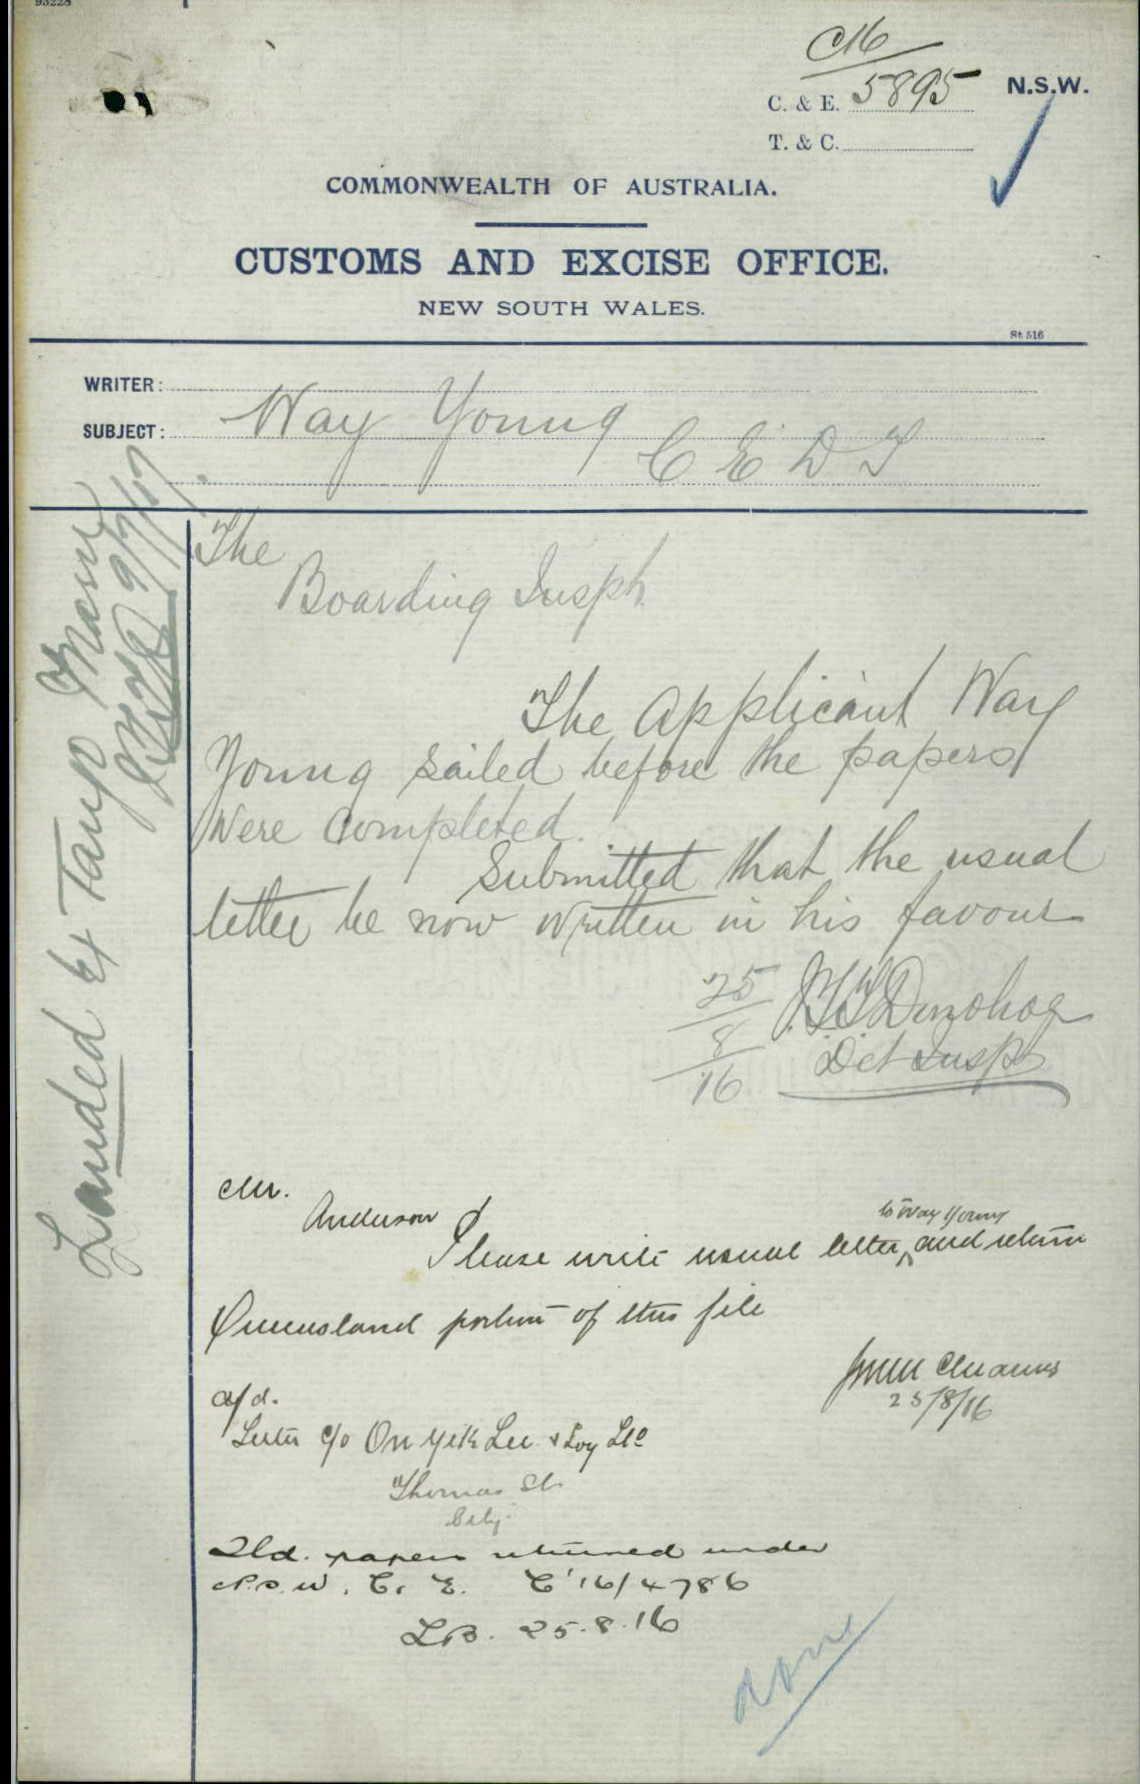 93228
C16
C. & E. 5895 N.S.W.
T. & C.
COMMONWEALTH OF AUSTRALIA.
CUSTOMS AND EXCISE OFFICE.
NEW SOUTH WALES.
St. 516
WRITER:
SUBJECT: Way Young
C E D T
The
Boarding Inspr
The Applicant Way
Young sailed before the papers
were completed.
Submitted that the usual
letter be now written in his favour
25
8
16
Donohoe
Det Insp
Landed Ex Taiyo Maru
9/7/17
Mr.
Anderson
to Way Young
Please write usual letter, and return
Queensland portion of this file
25/8/16
a/d.
Letter c/o On Yik Lee & Coy Ltd
Thomas St
City.
Qld. papers returned under
N.S.W. C. E. C'16/4786
LB. 25.8.16
done